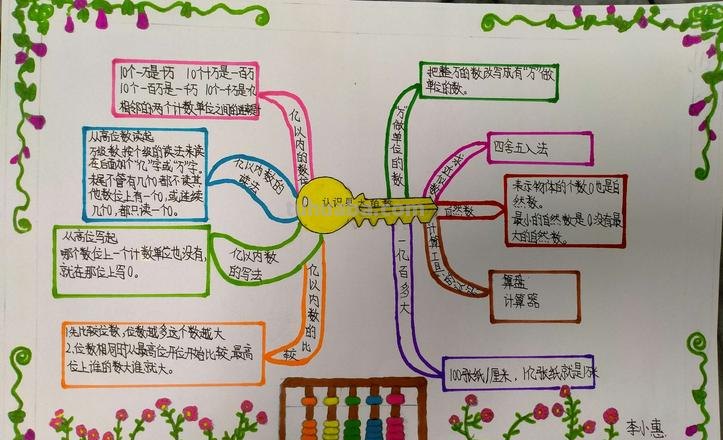 10个一万是十万 10个十万是一百万
10个一百万是一千万 10个一千万是一亿
相邻的两个计数单位之间的进率是十
亿以内的数位
从高位数读起
万级数按个级的读法来读
在后面加个“亿”字或“万”字。
末尾不管有几个0都不读其
他数位上有一个0,或连续
几个0,都只读一个0。
亿以内数的
读法
从高位写起
哪个数位上一个计数单位也没有,
就在那位上写0。
亿以内数
的写法
1.先比较位数,位数越多这个数越大
2.位数相同时从最高位开始比较,最高
位上谁的数大谁就大。
亿以内数的比
较
认识更大的数
把整万的数改写成有“万”做
单位的数。
“万”做单位的数
四舍五入法
表示物体的个数0也是自
然数。
最小的自然数是0没有最
大的自然数。
自然数
算盘
计算器
计算工具
一亿有多大
100张纸1厘米,1亿张纸就是1万米
李小惠